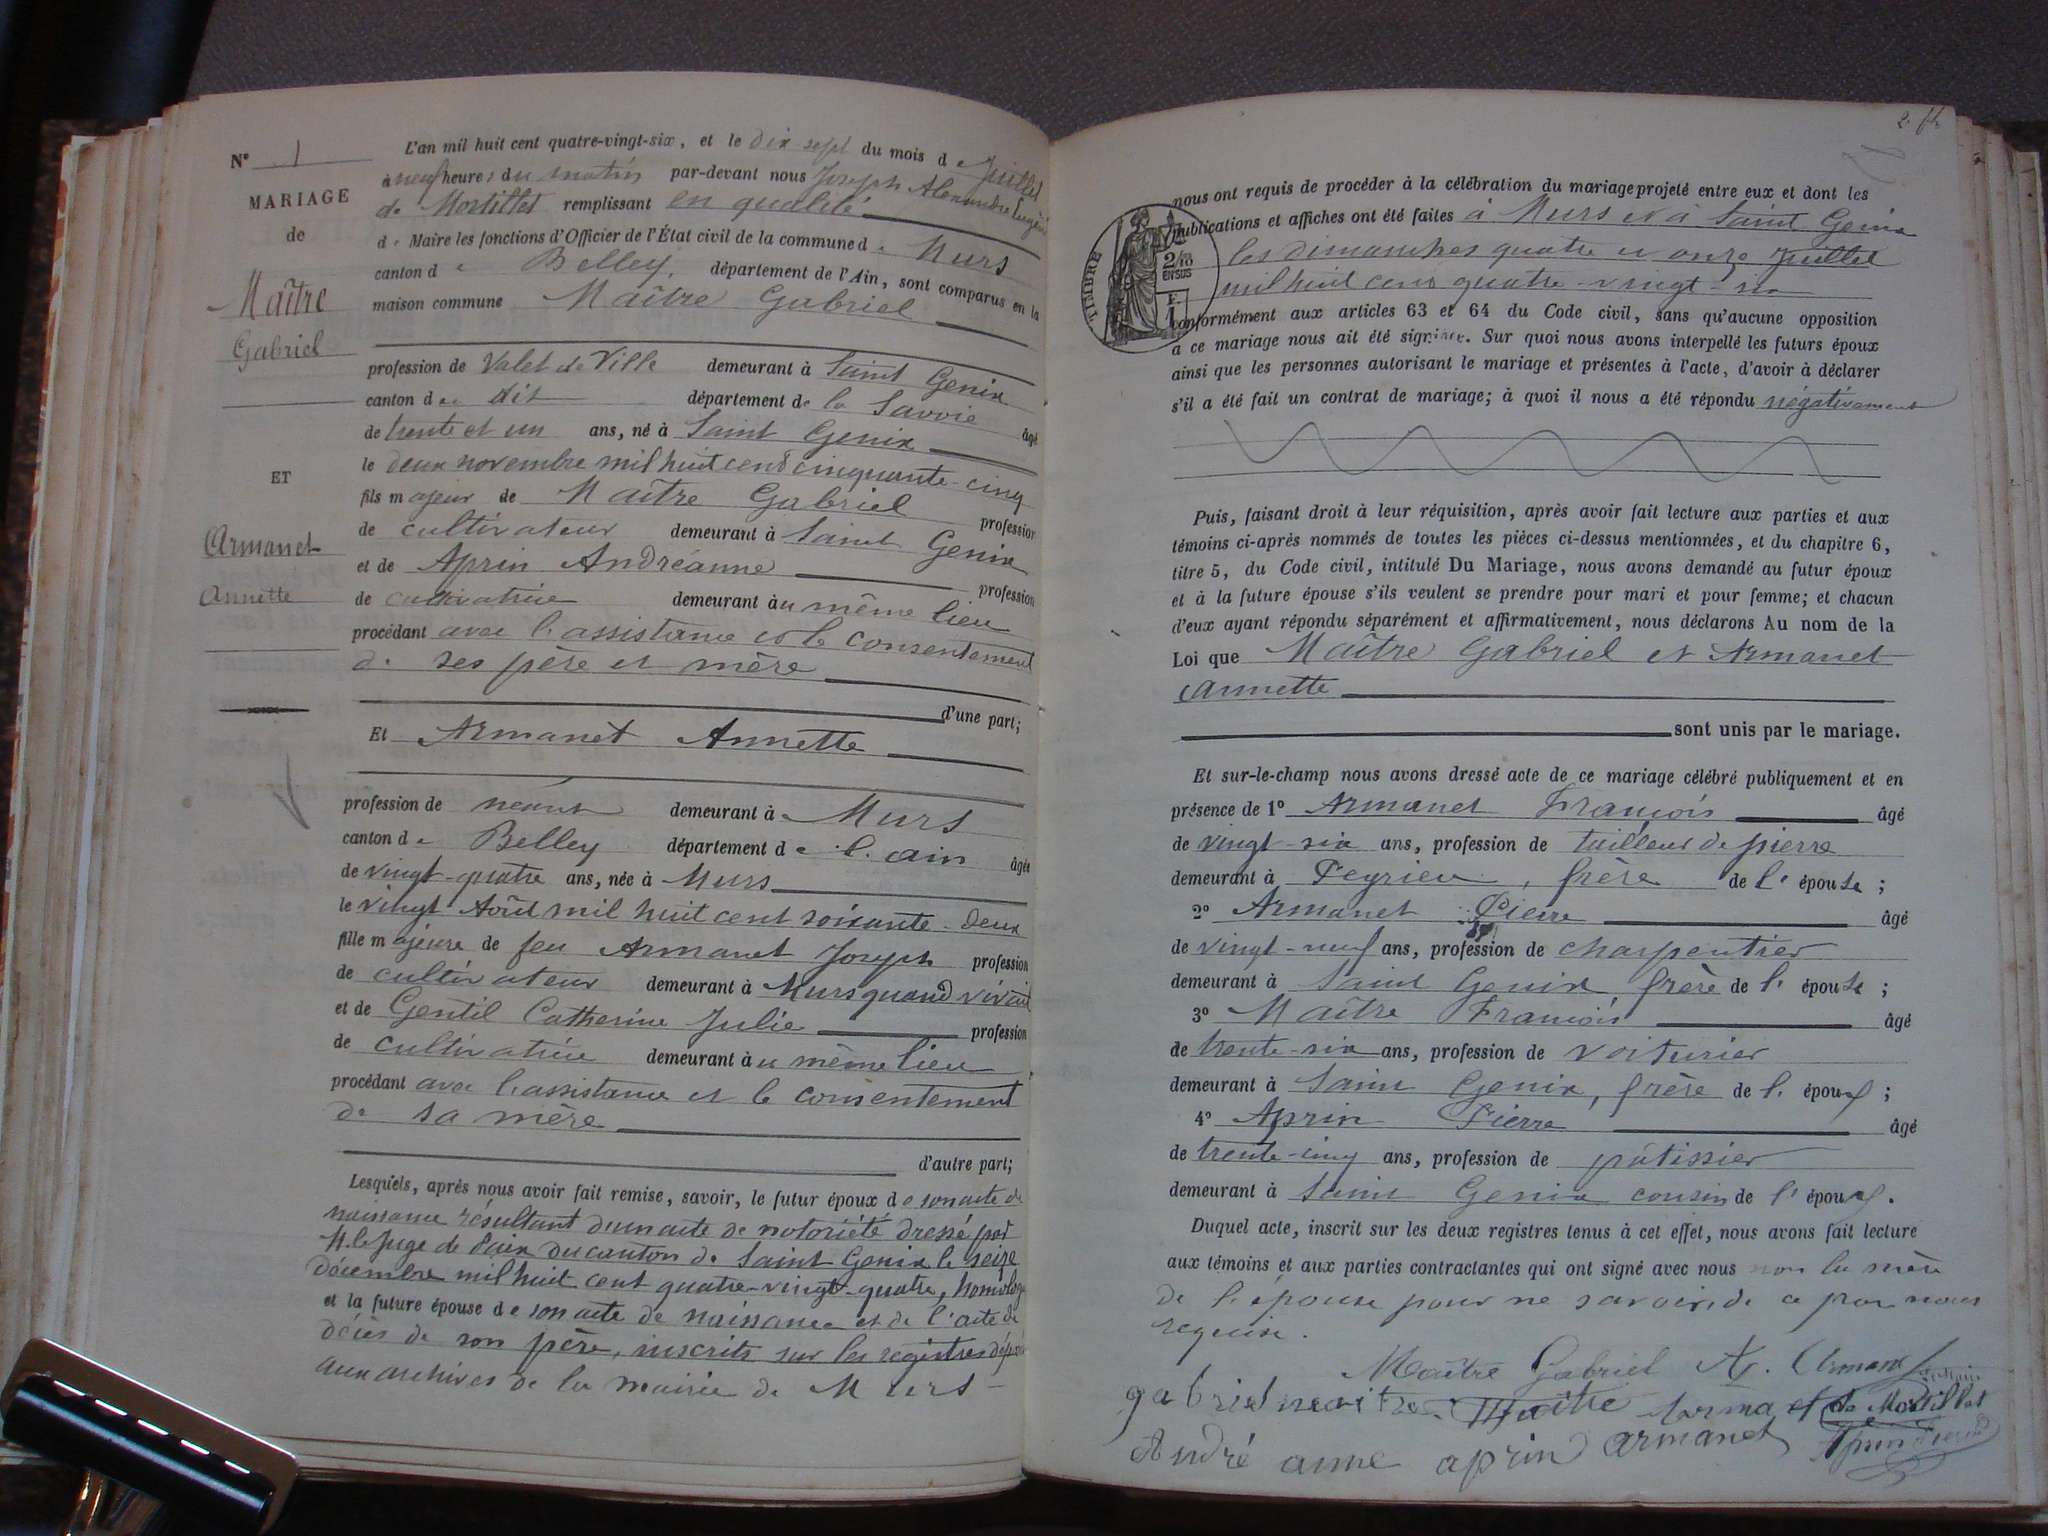 N° 1
MARIAGE
de
Maître
Gabriel
ET
Armanet
Annette
L'an mil huit cent quatre-vingt-six, et le dix sept du mois de Juillet
à neuf heures du matin par-devant nous Joseph Alexandre Eugène
de Mortillet remplissant en qualité
de Maire les fonctions d'Officier de l'État civil de la commune de Murs
canton de Belley, département de l'Ain, sont comparus en la
maison commune Maître Gabriel
profession de Valet de Ville demeurant à Saint Genix
canton de dit département de la Savoie âgé
de trente et un ans, né à Saint Genix
le deux novembre mil huit cent cinquante-cinq
fils majeur de Maître Gabriel profession
de cultivateur demeurant à Saint Genix
et de Aprin Andréanne profession
de cultivatrice demeurant au même lieu
procédant avec l'assistance et le consentement
de ses père et mère
d'une part;
Et Armanet Annette
profession de néant demeurant à Murs
canton de Belley département de l'ain âgée
de vingt-quatre ans, née à Murs
le vingt Août mil huit cent soixante-deux
fille majeure de feu Armanet Joseph profession
de cultivateur demeurant à Murs quand vivait
et de Gentil Catherine Julie profession
de cultivatrice demeurant au même lieu
procédant avec l'assistance et le consentement
de sa mère
d'autre part;
Lesquels, après nous avoir fait remise, savoir, le futur époux de son acte de
naissance résultant d'un acte de notoriété dressé par
M. le Juge de Paix du canton de Saint Genix le seize
décembre mil huit cent quatre-vingt-quatre, homologué
et la future épouse de son acte de naissance et de l'acte de
décès de son père, inscrits sur les registres déposés
aux archives de la mairie de Murs
nous ont requis de procéder à la célébration du mariage projeté entre eux et dont les
publications et affiches ont été faites à Murs et à Saint Genix
les dimanches quatre et onze Juillet
mil huit cent quatre-vingt-six
TIMBRE
EN SUS
conformément aux articles 63 et 64 du Code civil, sans qu'aucune opposition
a ce mariage nous ait été signifiée. Sur quoi nous avons interpellé les futurs époux
ainsi que les personnes autorisant le mariage et présentes à l'acte, d'avoir à déclarer
s'il a été fait un contrat de mariage; à quoi il nous a été répondu négativement
Puis, faisant droit à leur réquisition, après avoir fait lecture aux parties et aux
témoins ci-après nommés de toutes les pièces ci-dessus mentionnées, et du chapitre 6,
titre 5, du Code civil, intitulé Du Mariage, nous avons demandé au futur époux
et à la future épouse s'ils veulent se prendre pour mari et pour femme; et chacun
d'eux ayant répondu séparément et affirmativement, nous déclarons Au nom de la
Loi que Maître Gabriel et Armanet
Annette
sont unis par le mariage.
Et sur-le-champ nous avons dressé acte de ce mariage célébré publiquement et en
présence de 1° Armanet François âgé
de vingt-six ans, profession de tailleur de pierre
demeurant à Peyrieu, frère de l'épouse;
2° Armanet Pierre âgé
de vingt-neuf ans, profession de charpentier
demeurant à Saint Genix frère de l'épouse;
3° Maître François âgé
de trente-six ans, profession de voiturier
demeurant à Saint Genix, frère de l'époux;
4° Aprin Pierre âgé
de trente-cinq ans, profession de pâtissier
demeurant à Saint Genix cousin de l'époux.
Duquel acte, inscrit sur les deux registres tenus à cet effet, nous avons fait lecture
aux témoins et aux parties contractantes qui ont signé avec nous non la mère
de l'épouse pour ne savoir, de ce par nous
requise.
Maître Gabriel A. Armanet
gabriel maitre Maître Armanet de Mortillet
André anne aprin armanet Aprin Pierre